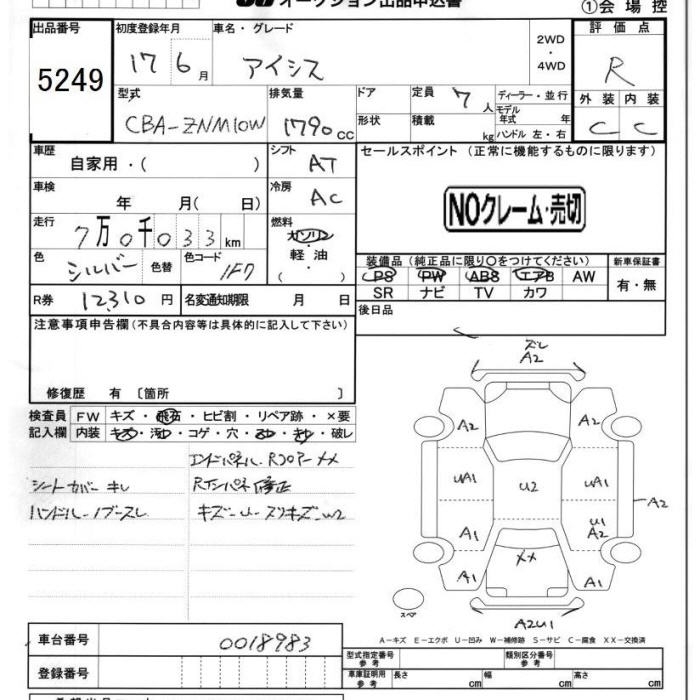 オークション出品申込書
①会場控
出品番号 初度登録年月 車名・グレード 評価点
5249 17 6月 アイシス 2WD・4WD R
型式 排気量 ドア 定員 7人 ディーラー・並行 外装 内装
CBA-ZNM10W 1790cc 形状 積載 kg モデル年式 年 ハンドル 左・右 C C
車歴 自家用・( ) シフト AT セールスポイント (正常に機能するものに限ります)
車検 年 月( 日) 冷房 AC
NOクレーム・売切
走行 7万0千033km 燃料 ガソリン・軽油・( )
色 シルバー 色替 色コード 1F7
装備品 (純正品に限り○をつけてください) 新車保証書
PS PW ABS エアB AW 有・無
SR ナビ TV カワ
R券 12310円 名変通知期限 月 日 後日品
注意事項申告欄 (不具合内容等は具体的に記入して下さい)
修復歴 有 〔箇所 〕
検査員 FW キズ・飛石・ヒビ割・リペア跡・×要
記入欄 内装 キズ・汚れ・コゲ・穴・スレ・キレ・破レ
エンドパネル・Rフロアー XX
シートカバーキレ RインパネL修正
ハンドル・ノブースレ キズーU・スリキズーW2
ズレ
A2
A2 A2
UA1 U2 UA1
A2
U1
A1 A2
XX
A1 A1
スペア
A2U1
A−キズ E−エクボ U−凹み W−補修跡 S−サビ C−腐食 XX−交換済
車台番号 0018983
型式指定番号 参考 類別区分番号 参考
登録番号 車庫証明用 参考 長さ cm 幅 cm 高さ cm